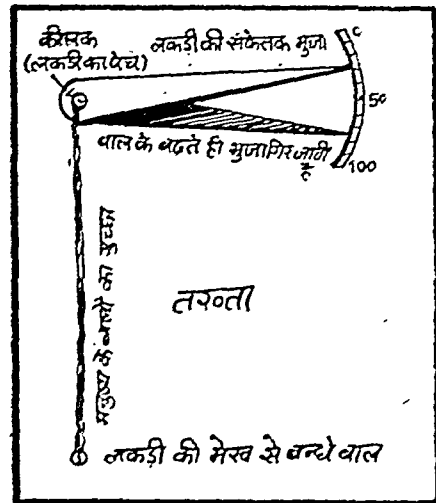 कीलक
(लकड़ी का पेच)
लकड़ी की संकेतक भुजा
0
50
100
बाल के बढ़ते ही भुजा गिर जाती
है
मनुष्य के बालों का गुच्छा
तख्ता
लकड़ी की मेख से बन्धे बाल